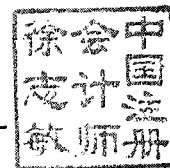 中国注册
会计师
徐志敏